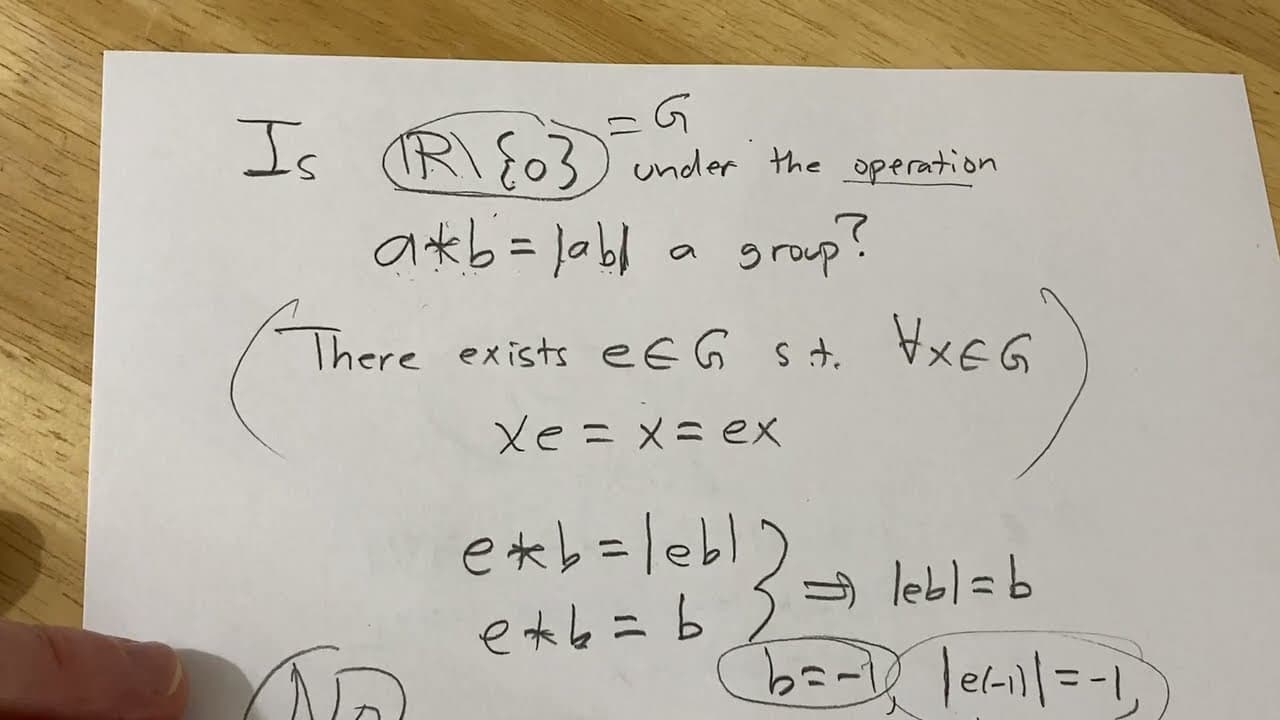 Is ℝ\{0} = G under the operation
a*b = |ab| a group?
(There exists e∈G s.t. ∀x∈G
xe = x = ex)
e*b = |eb|
e*b = b } ⇒ |eb| = b
No b=-1, |e(-1)| = -1,